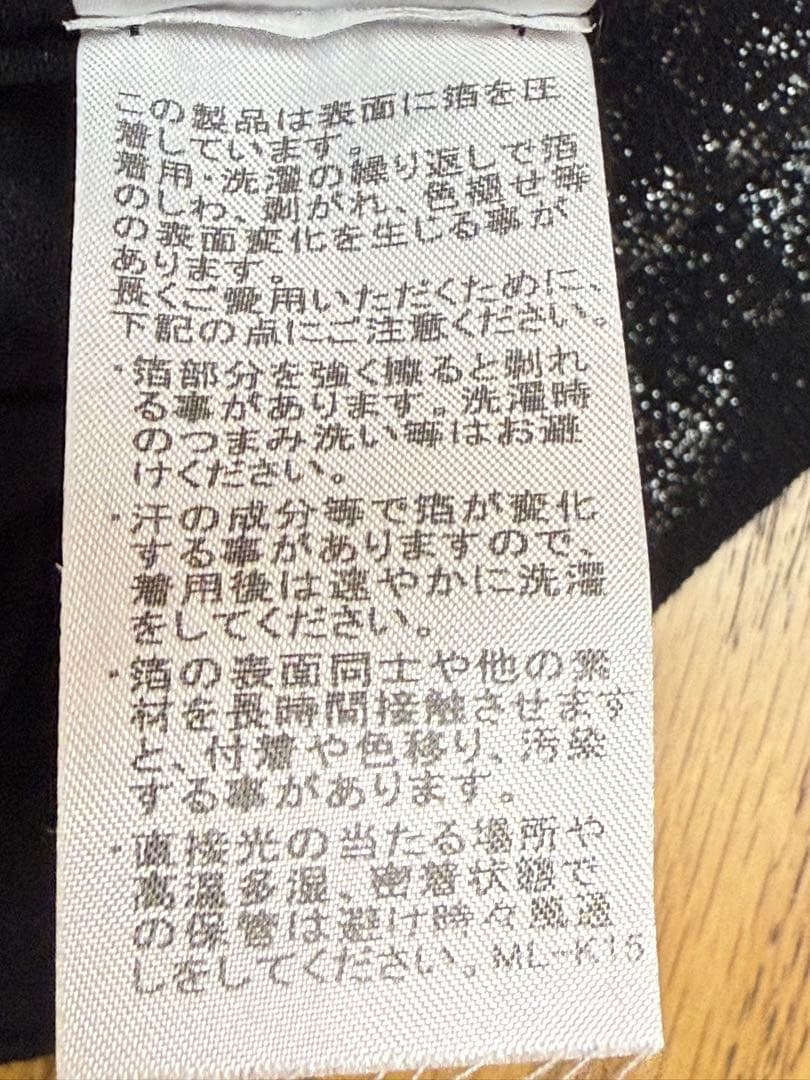 この製品は表面に箔を圧
着しています。
着用・洗濯の繰り返しで箔
のしわ、剥がれ、色褪せ等
の表面変化を生じる事が
あります。
長くご愛用いただくために、
下記の点にご注意ください。
・箔部分を強く擦ると剥れ
る事があります。洗濯時
のつまみ洗い等はお避
けください。
・汗の成分等で箔が変化
する事がありますので、
着用後は速やかに洗濯
をしてください。
・箔の表面同士や他の素
材を長時間接触させます
と、付着や色移り、汚染
する事があります。
・直接光の当たる場所や
高温多湿、密着状態で
の保管は避け時々風通
しをしてください。ML-K15